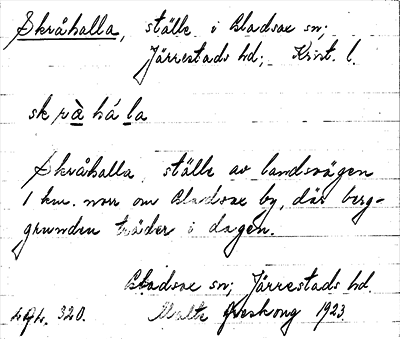 Skråhalla, ställe i Gladsax sn;
Järrestads hd; Krist. l.
skrà há la
Skråhalla, ställe av landsvägen
1 km. norr om Gladsax by, där berg-
grunden träder i dagen.
Gladsax sn; Järrestads hd.
494. 320. Malte 1923